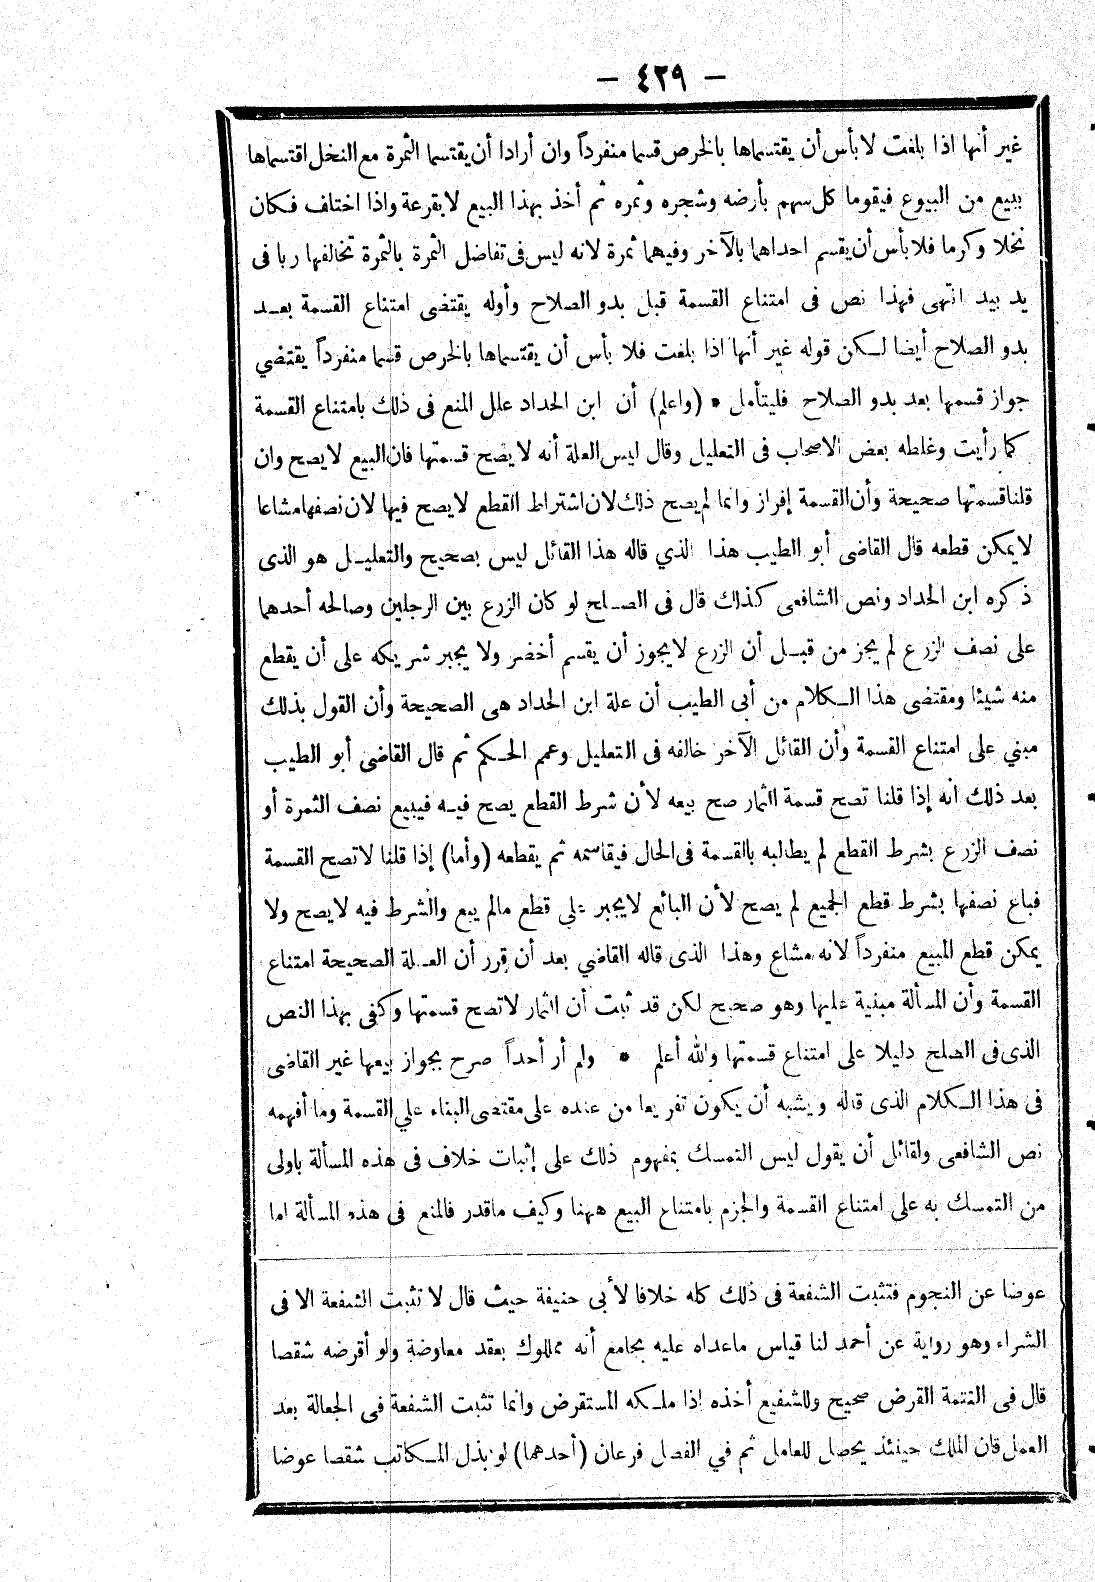 — ٤٢٩ —
غير أنها اذا بلغت لا بأس أن يقتسماها بالخرص قسما منفرداً وان أرادا أن يقتسما الثمرة مع النخل اقتسماها
ببيع من البيوع فيقوما كل سهم بأرضه وشجره وثمره ثم أخذ بهذا البيع لا بقرعة واذا اختلف فكان
نخلا وكرما فلا بأس أن يقسم احداهما بالآخر وفيهما ثمرة لانه ليس فى تفاضل الثمرة بالثمرة تخالفها ربا فى
يد بيد انتهى فهذا نص فى امتناع القسمة قبل بدو الصلاح وأوله يقتضى امتناع القسمة بعد
بدو الصلاح أيضا لكن قوله غير أنها اذا بلغت فلا بأس أن يقتسماها بالخرص قسما منفرداً يقتضي
جواز قسمها بعد بدو الصلاح فليتأمل * (واعلم) أن ابن الحداد علل المنع فى ذلك بامتناع القسمة
كما رأيت وغلطه بعض الاصحاب فى التعليل وقال ليس العلة أنه لا يصح قسمتها فان البيع لا يصح وان
قلنا قسمتها صحيحة وأن القسمة إفراز وانما لم يصح ذلك لان اشتراط القطع لا يصح فيها لان نصفها مشاعا
لا يمكن قطعه قال القاضى أبو الطيب هذا الذي قاله هذا القائل ليس بصحيح والتعليل هو الذى
ذكره ابن الحداد ونص الشافعى كذلك قال فى الصلح لو كان الزرع بين الرجلين وصالحه أحدهما
على نصف الزرع لم يجز من قبل أن الزرع لا يجوز أن يقسم أخضر ولا يجبر شريكه على أن يقطع
منه شيئا ومقتضى هذا الكلام من أبى الطيب أن علة ابن الحداد هى الصحيحة وأن القول بذلك
مبني على امتناع القسمة وأن القائل الآخر خالفه فى التعليل وعمم الحكم ثم قال القاضى أبو الطيب
بعد ذلك انه إذا قلنا تصح قسمة الثمار صح بيعه لأن شرط القطع يصح فيه فيبيع نصف الثمرة أو
نصف الزرع بشرط القطع لم يطالبه بالقسمة فى الحال فيقاسمه ثم يقطعه (وأما) إذا قلنا لا تصح القسمة
فباع نصفها بشرط قطع الجميع لم يصح لأن البائع لا يجبر على قطع مالم يبع والشرط فيه لا يصح ولا
يمكن قطع المبيع منفرداً لانه مشاع وهذا الذى قاله القاضي بعد أن قرر أن العلة الصحيحة امتناع
القسمة وأن المسألة مبنية عليها وهو صحيح لكن قد ثبت أن الثمار لا تصح قسمتها وكفى بهذا النص
الذى فى الصلح دليلا على امتناع قسمتها والله أعلم * ولم أر أحداً صرح بجواز بيعها غير القاضى
فى هذا الكلام الذى قاله ويشبه أن يكون تفريعا من عنده على مقتضى البناء علي القسمة وما أفهمه
نص الشافعى ولقائل أن يقول ليس التمسك بمفهوم ذلك على إثبات خلاف فى هذه المسألة باولى
من التمسك به على امتناع القسمة والجزم بامتناع البيع ههنا وكيف ماقدر فالمنع فى هذه المسألة اما
عوضا عن النجوم فتثبت الشفعة فى ذلك كله خلافا لأبى حنيفة حيث قال لا تثبت الشفعة الا فى
الشراء وهو رواية عن أحمد لنا قياس ماعداه عليه بجامع أنه مملوك بعقد معاوضة ولو أقرضه شقصا
قال فى التتمة القرض صحيح وللشفيع أخذه اذا ملكه المستقرض وانما تثبت الشفعة فى الجعالة بعد
العمل فان الملك حينئذ يحصل للعامل ثم في الفصل فرعان (أحدهما) لو بذل المكاتب شقصا عوضا